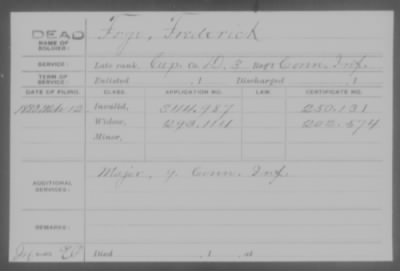 DEAD
NAME OF SOLDIER: Frye, Frederick
SERVICE: Late rank, Cap. Co. D, 3 Reg't Conn. Inf.
TERM OF SERVICE: Enlisted , 1 Discharged , 1
DATE OF FILING. CLASS. APPLICATION NO. LAW. CERTIFICATE NO.
12 Invalid, 344.987 250.131
Widow, 293.111 202.574
Minor,
ADDITIONAL SERVICES: Major, 9. Conn. Inf.
REMARKS:
Died , 1 , at